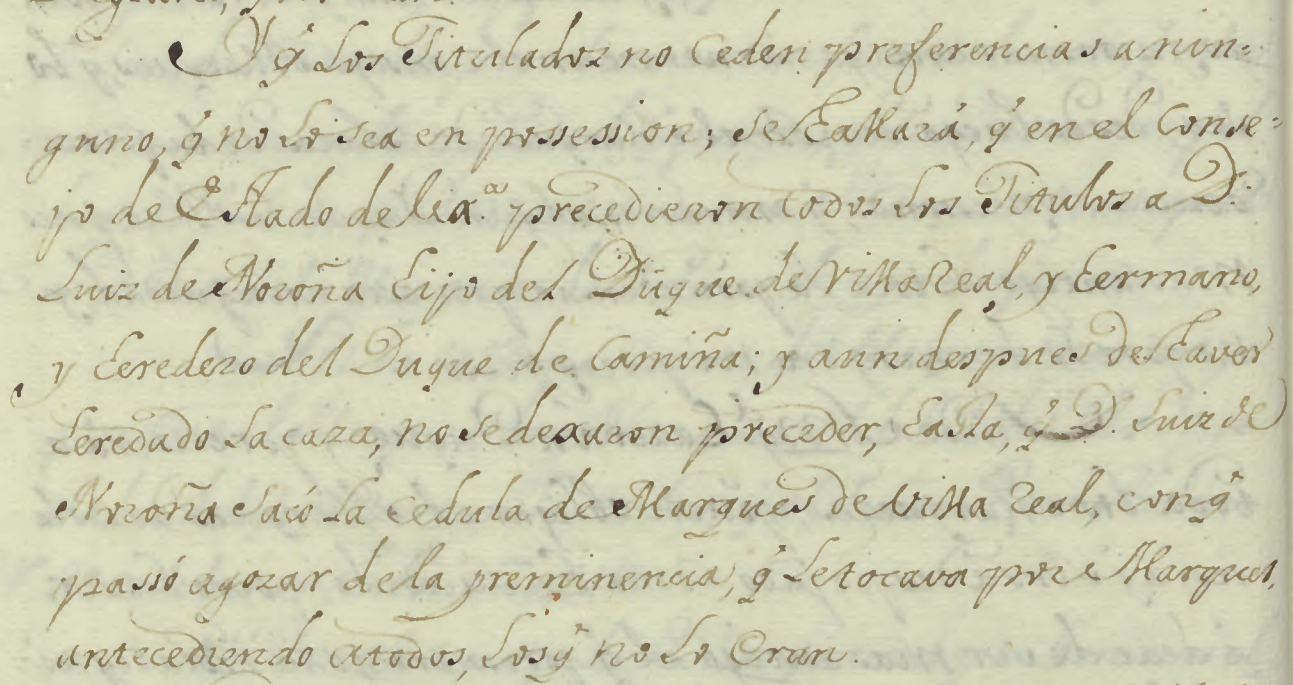 Y q̃ los Titulados no ceden preferencias a nin=
guno, q̃ no lo sea en possession; se hallará, q̃ en el Conse=
jo de Estado de lixª. precedieron todos los Titulos a D.
Luiz de Noroña hijo del Duque de Villa Real, y hermano,
y heredero del Duque de Camiña; y aun despues de haver
heredado la caza, no se dexaron preceder, hasta, q̃ D. Luiz de
Noroña sacó la cedula de Marques de Villa Real, con q̃
passó a gozar de la preminencia, q̃ le tocava por Marques,
antecediendo a todos, los q̃ no lo eran.